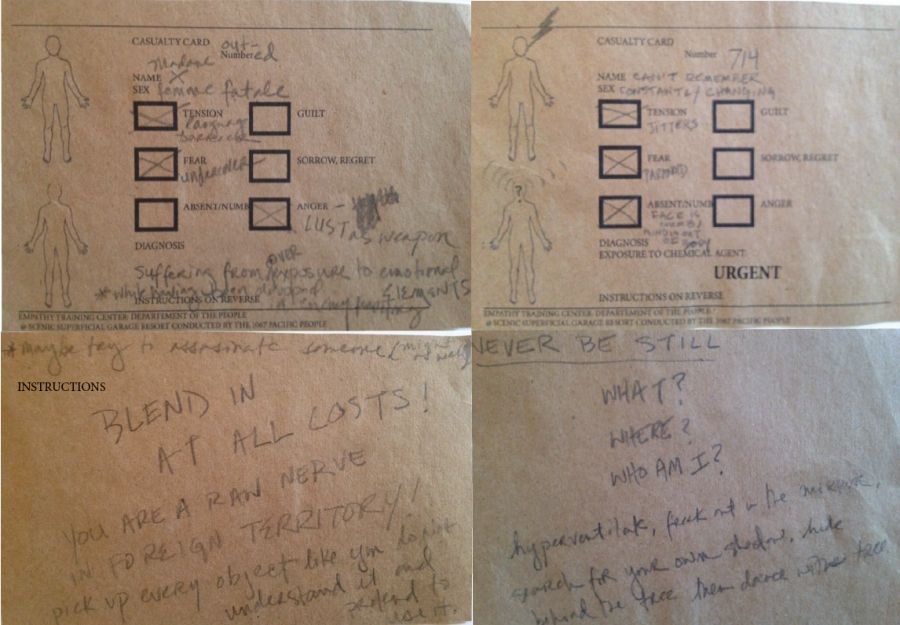 CASUALTY CARD
out-ed
Number
Madame X
NAME
SEX femme fatale
TENSION
GUILT
language
barrier
FEAR
SORROW, REGRET
undercover
ABSENT/NUMB
ANGER
LUST as weapon
DIAGNOSIS
suffering from over exposure to emotional
ELEMENTS
* while having been dropped
in enemy territory
INSTRUCTIONS ON REVERSE
EMPATHY TRAINING CENTER: DEPARTEMENT OF THE PEOPLE
@ SCENIC SUPERFICIAL GARAGE RESORT CONDUCTED BY THE 1067 PACIFIC PEOPLE
CASUALTY CARD
Number 714
NAME CAN'T REMEMBER
SEX CONSTANTLY CHANGING
TENSION
GUILT
JITTERS
FEAR
SORROW, REGRET
PARANOID
?
ABSENT/NUMB
ANGER
FACE IS
NUMB/
MIND IS OUT
OF BODY
DIAGNOSIS
EXPOSURE TO CHEMICAL AGENT
URGENT
INSTRUCTIONS ON REVERSE
EMPATHY TRAINING CENTER: DEPARTEMENT OF THE PEOPLE
@ SCENIC SUPERFICIAL GARAGE RESORT CONDUCTED BY THE 1067 PACIFIC PEOPLE
* maybe try to assasinate someone (might as well)
INSTRUCTIONS
BLEND IN
AT ALL COSTS!
YOU ARE A RAW NERVE
IN FOREIGN TERRITORY!
pick up every object like you do not
understand it and
pretend to
use it.
NEVER BE STILL
WHAT?
WHERE?
WHO AM I?
hyperventilate, freak out in the mirror,
search for your own shadow, hide
behind the tree then dance with the tree